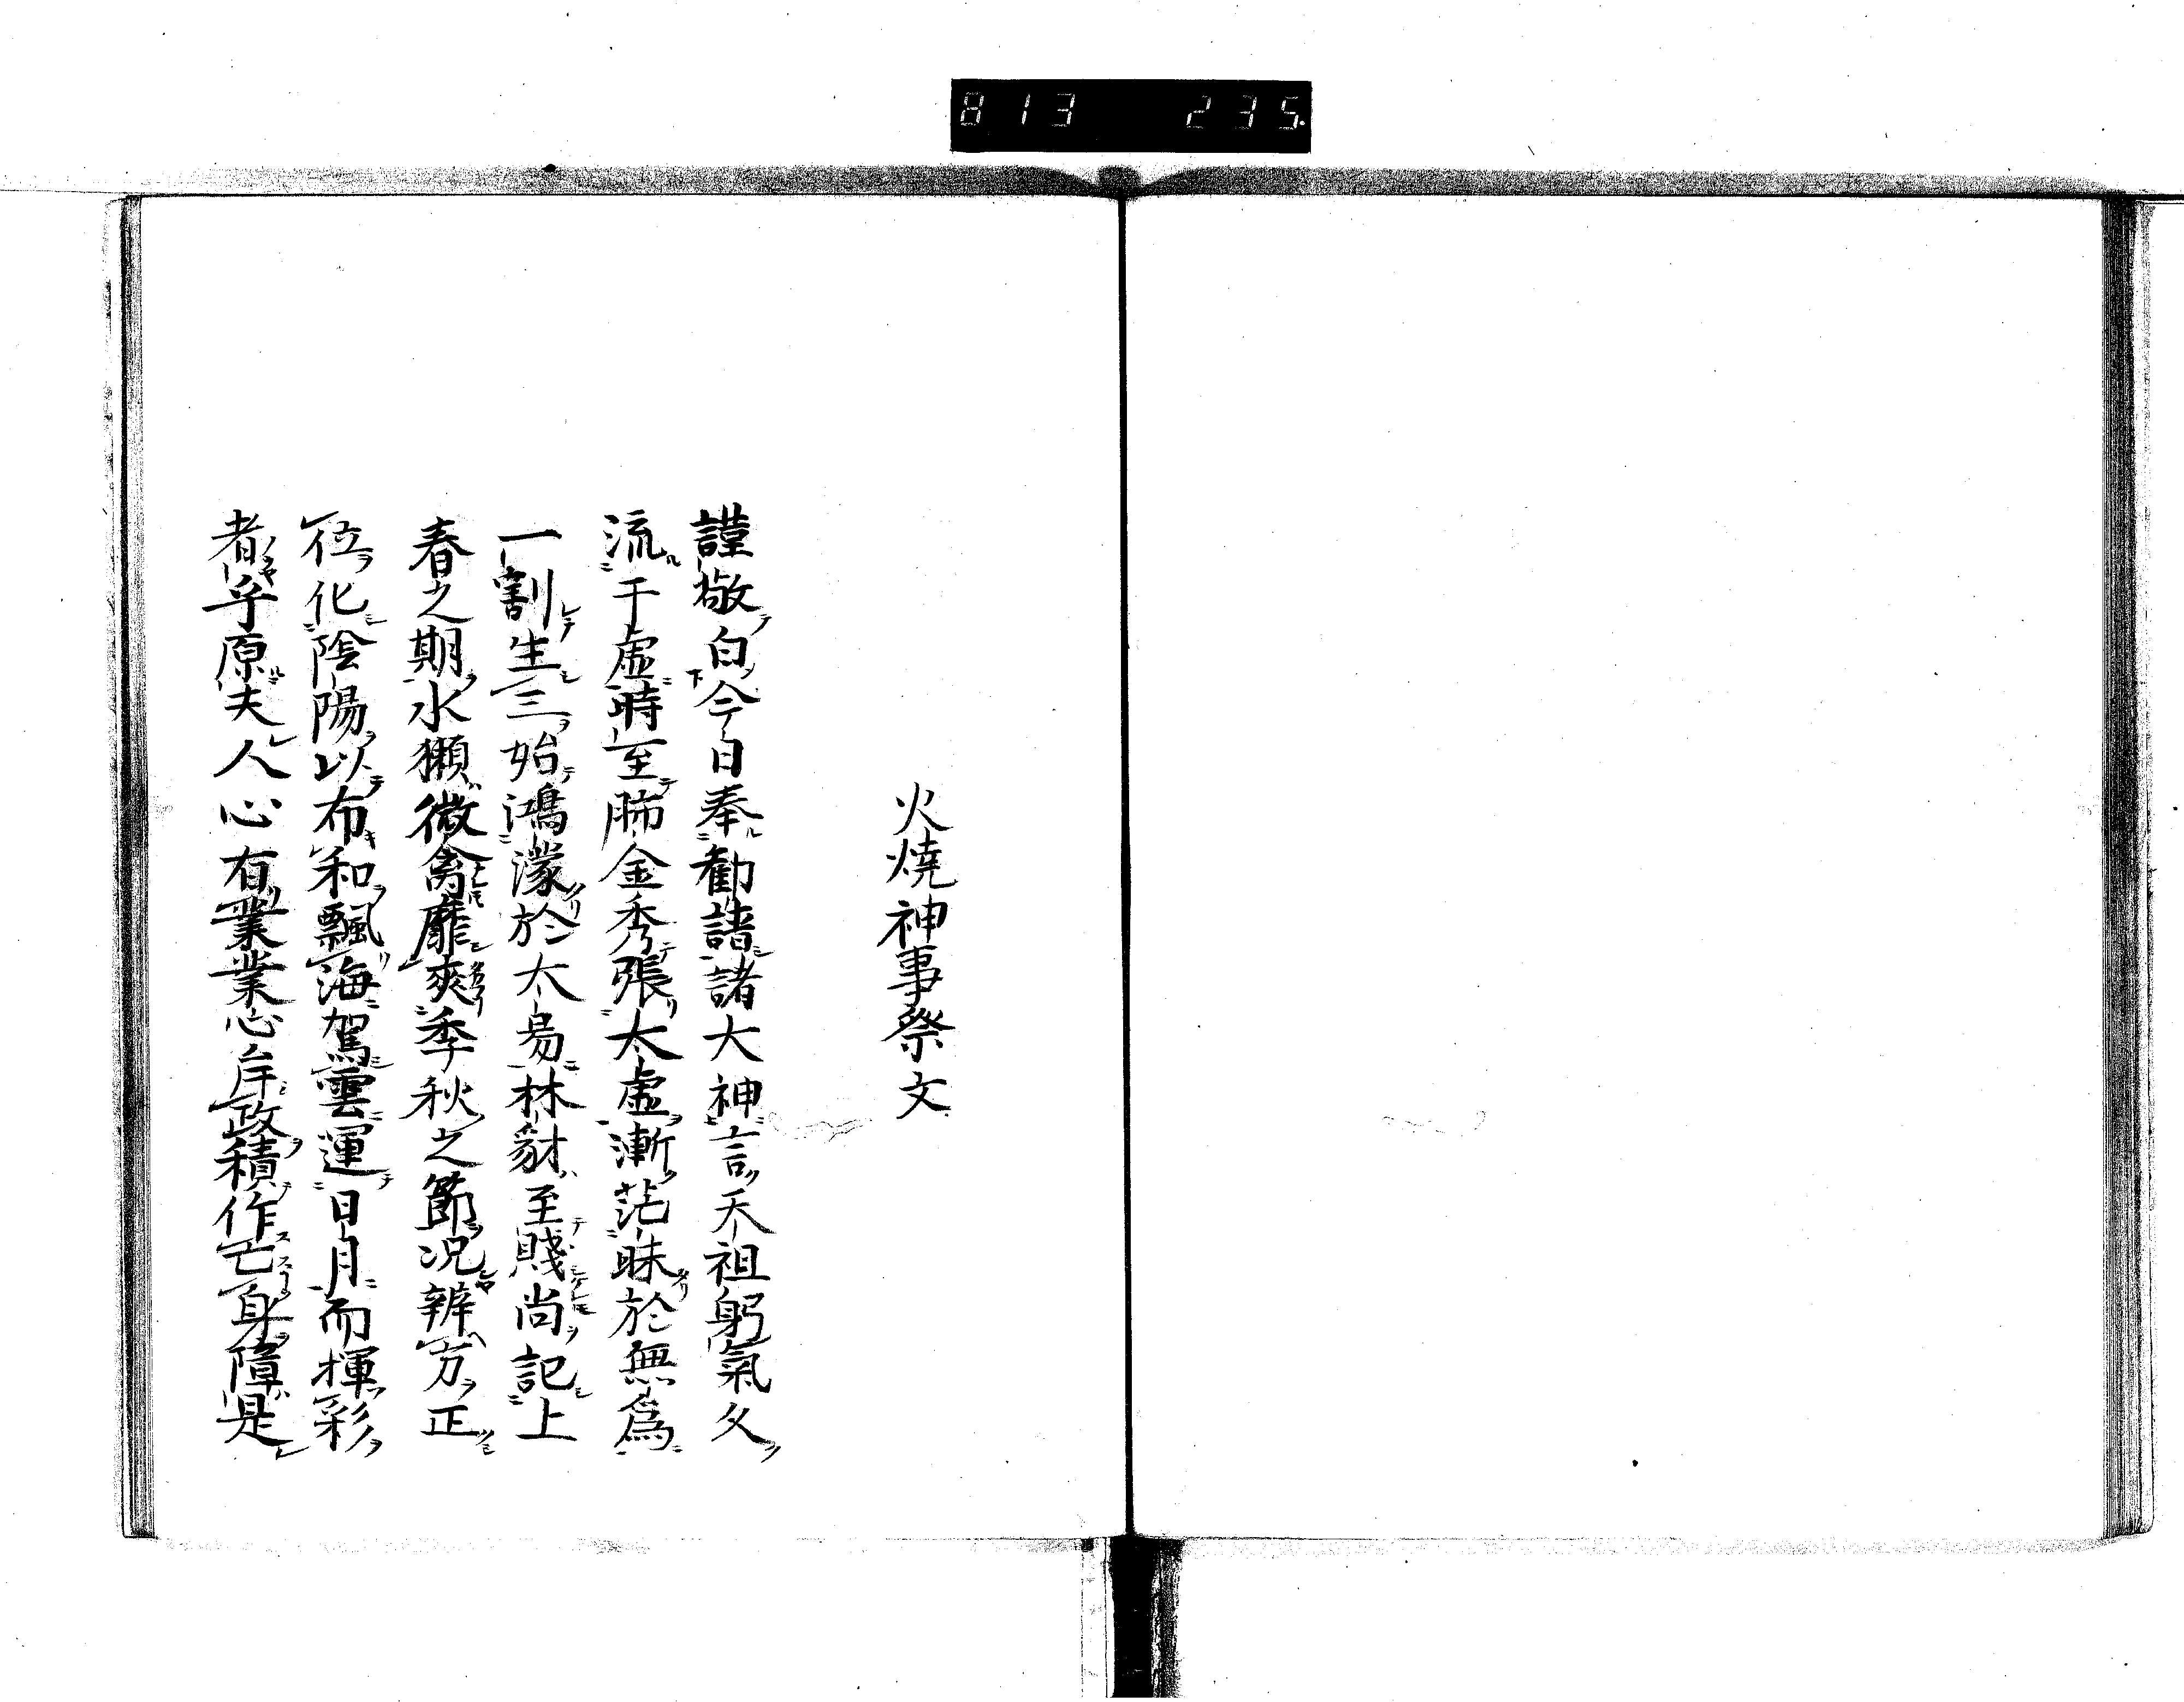 813 235.
火燒神事祭文
謹敬白今日奉勸請諸大神言天祖躬氣久
流于虛時至肺金秀張太虛漸茫昧於無為
一割生三始鴻濛於太易林豺至賤尚記上
春之期水獺微禽靡爽季秋之節況辨方正
位化陰陽以布和飄海駕雲運日月而揮彩
者乎原夫人心有業業心庄政積作亡身障是